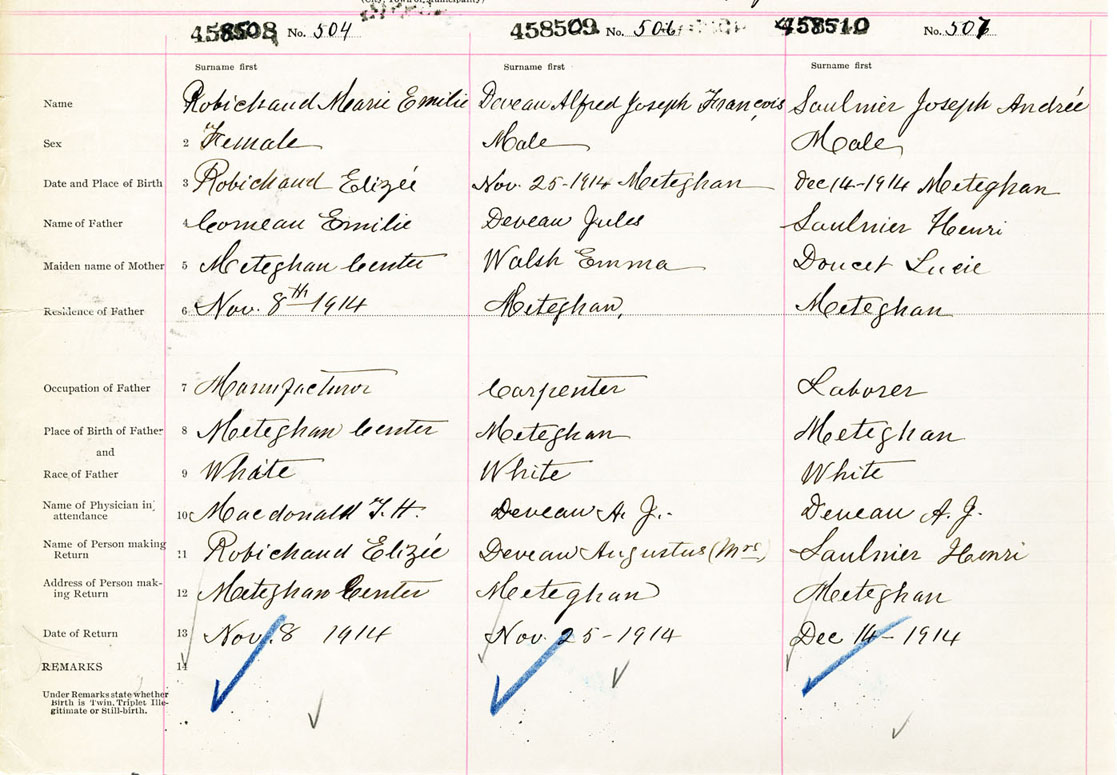 458508 No. 504 458509 No. 506 458510 No. 507
Surname first Surname first Surname first
Name Robichaud Marie Emilie Deveau Alfred Joseph François Saulnier Joseph Andrée
Sex 2 Female Male Male
Date and Place of Birth 3 Robichaud Elizée Nov. 25-1914 Meteghan Dec 14-1914 Meteghan
Name of Father 4 Comeau Emilie Deveau Jules Saulnier Henri
Maiden name of Mother 5 Meteghan Center Walsh Emma Doucet Lucie
Residence of Father 6 Nov. 8th 1914 Meteghan, Meteghan
Occupation of Father 7 Manufacturer Carpenter Laborer
Place of Birth of Father 8 Meteghan Center Meteghan Meteghan
and
Race of Father 9 White White White
Name of Physician in
attendance 10 Macdonald T. H. Deveau A. J. Deveau A. J.
Name of Person making
Return 11 Robichaud Elizée Deveau Augustus (Mrs) Saulnier Henri
Address of Person mak-
ing Return 12 Meteghan Center Meteghan Meteghan
Date of Return 13 Nov. 8 1914 Nov. 25-1914 Dec 14-1914
REMARKS 14
Under Remarks state whether
Birth is Twin, Triplet Ille-
gitimate or Still-birth.